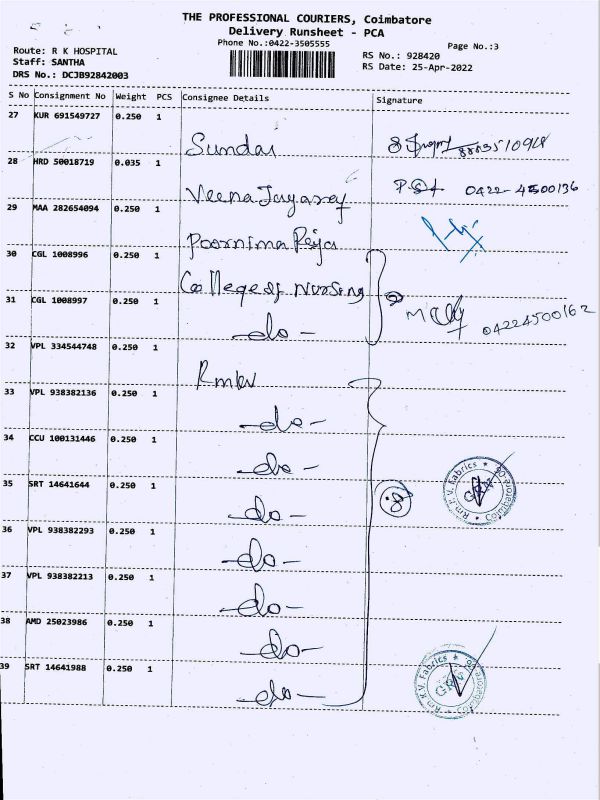 THE PROFESSIONAL COURIERS, Coimbatore
Delivery Runsheet - PCA
Phone No.:0422-3505555
Page No.:3
Route: R K HOSPITAL
Staff: SANTHA
DRS No.: DCJB92842003
RS No.: 928420
RS Date: 25-Apr-2022
S No Consignment No Weight PCS Consignee Details Signature
27 KUR 691549727 0.250 1
Sundar
28 HRD 50018719 0.035 1
Veena Jayaraj 0422-4500136
29 MAA 282654094 0.250 1
Poornima
30 CGL 1008996 0.250 1
College of Nursing
31 CGL 1008997 0.250 1
-do- 04224500162
32 VPL 334544748 0.250 1
Rmkv
33 VPL 938382136 0.250 1
-do-
34 CCU 100131446 0.250 1
-do-
35 SRT 14641644 0.250 1
-do- Rm.K.V. Fabrics * Coimbatore
36 VPL 938382293 0.250 1
-do-
37 VPL 938382213 0.250 1
-do-
38 AMD 25023986 0.250 1
-do-
39 SRT 14641988 0.250 1
-do- Rm.K.V. Fabrics * Coimbatore